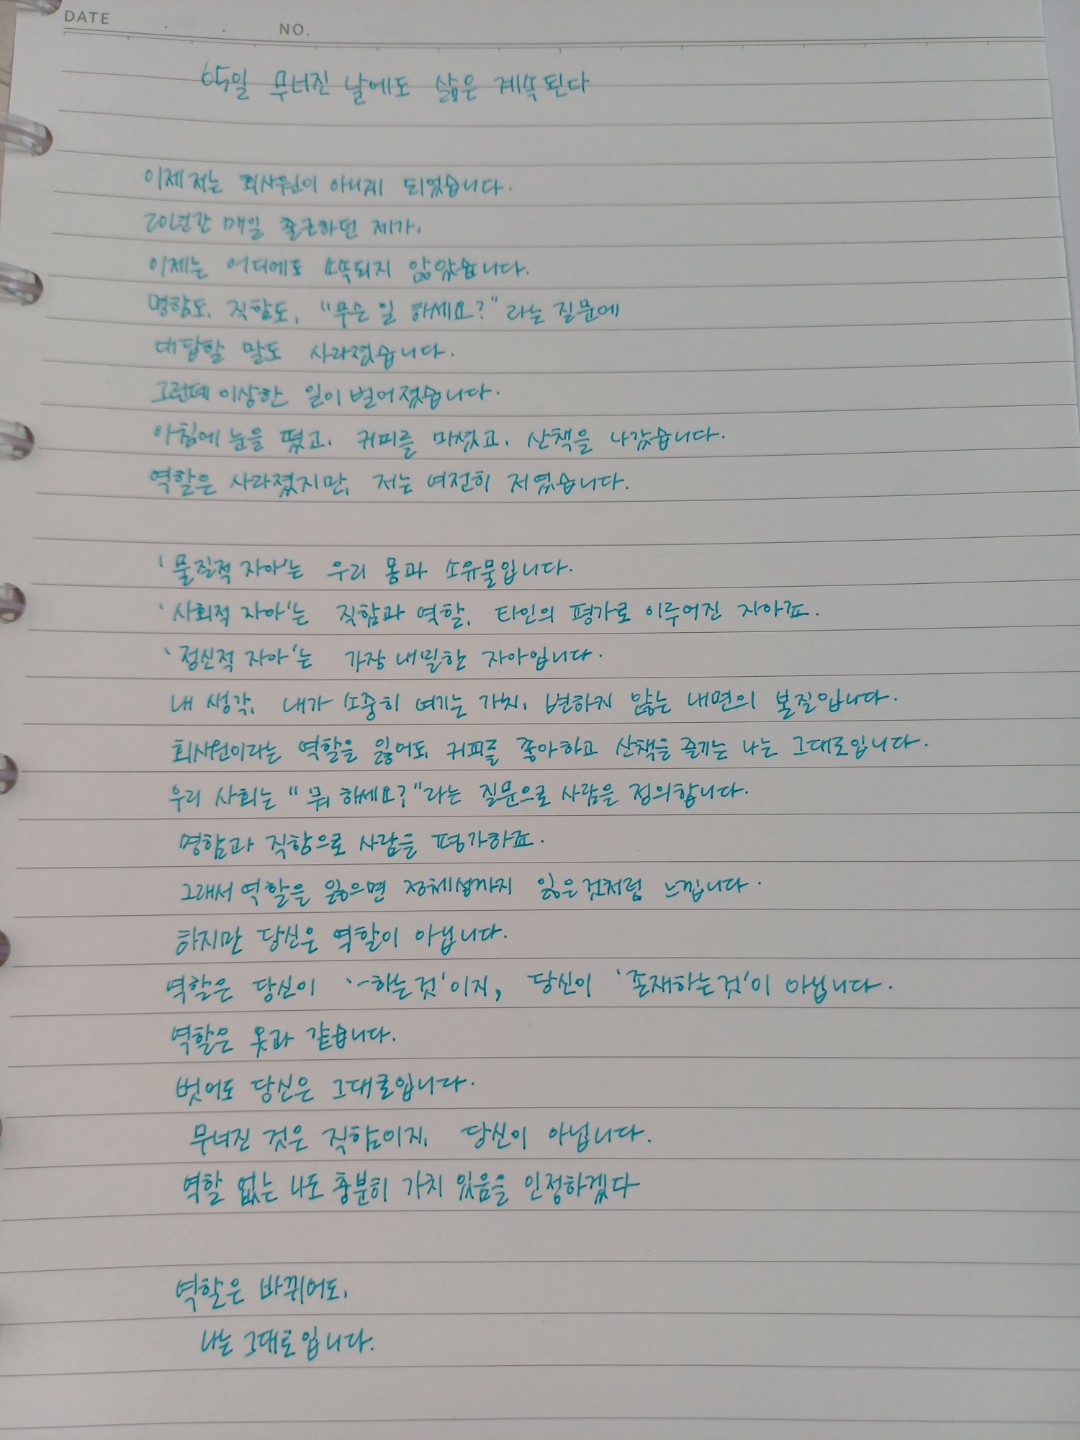 DATE . . NO.
65일 무너진 날에도 삶은 계속된다
이제 저는 회사원이 아니게 되었습니다.
20년간 매일 출근하던 제가,
이제는 어디에도 소속되지 않았습니다.
명함도, 직함도, "무슨 일 하세요?"라는 질문에
대답할 말도 사라졌습니다.
그런데 이상한 일이 벌어졌습니다.
아침에 눈을 떴고, 커피를 마셨고, 산책을 나갔습니다.
역할은 사라졌지만, 저는 여전히 저였습니다.
'물질적 자아'는 우리 몸과 소유물입니다.
'사회적 자아'는 직함과 역할, 타인의 평가로 이루어진 자아죠.
'정신적 자아'는 가장 내밀한 자아입니다.
내 생각, 내가 소중히 여기는 가치, 변하지 않는 내면의 본질입니다.
회사원이라는 역할을 잃어도 커피를 좋아하고 산책을 즐기는 나는 그대로입니다.
우리 사회는 "뭐 하세요?"라는 질문으로 사람을 정의합니다.
명함과 직함으로 사람을 평가하죠.
그래서 역할을 잃으면 정체성까지 잃은것처럼 느낍니다.
하지만 당신은 역할이 아닙니다.
역할은 당신이 '~하는것'이지, 당신이 '존재하는것'이 아닙니다.
역할은 옷과 같습니다.
벗어도 당신은 그대로입니다.
무너진 것은 직함이지, 당신이 아닙니다.
역할 없는 나도 충분히 가치 있음을 인정하겠다
역할은 바뀌어도,
나는 그대로입니다.